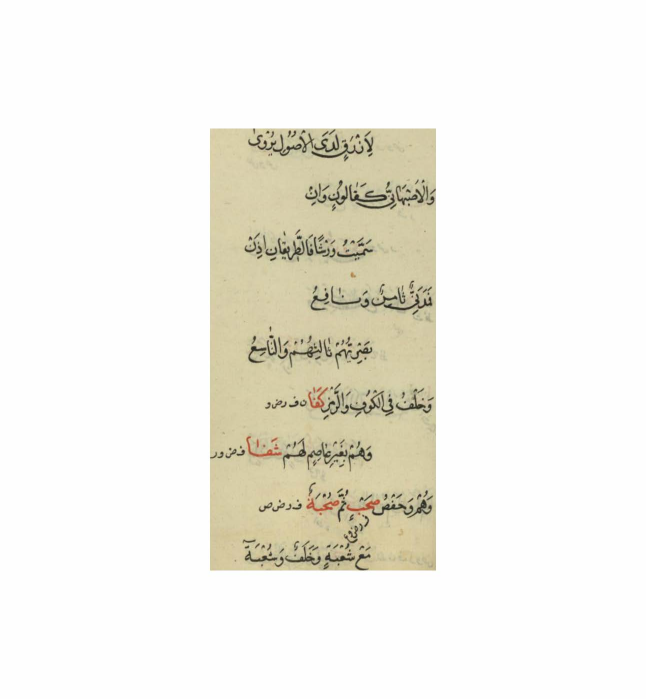 لِأَزْرَقٍ لَدَى الْأُصُولِ يُرْوَى
وَالْأَصْبَهَانِيُّ كَقَالُونٍ وَانِ
سَمَّيْتُ وَرْشًا فَالطَّرِيقَانِ إِذَنْ
مَدَنِيٌّ ثَامِنٌ وَنَافِعُ
بَصْرِيُّهُمْ ثَالِثُهُمْ وَالتَّاسِعُ
وَخَلَفٌ فِي الْكُوفِ وَالرَّمْزِ كَفَا ن ف ر ض و
وَهُمْ بِغَيْرِ عَاصِمٍ لَهُمْ شَفَا ف ض و ر
وَهُمْ وَحَفْصٌ صَحْبٌ ثُمَّ صُحْبَةٌ ف ر ض ص
ف ر ض و ع
مَعْ شُعْبَةٍ وَخَلَفٌ وَشُعْبَةٌ